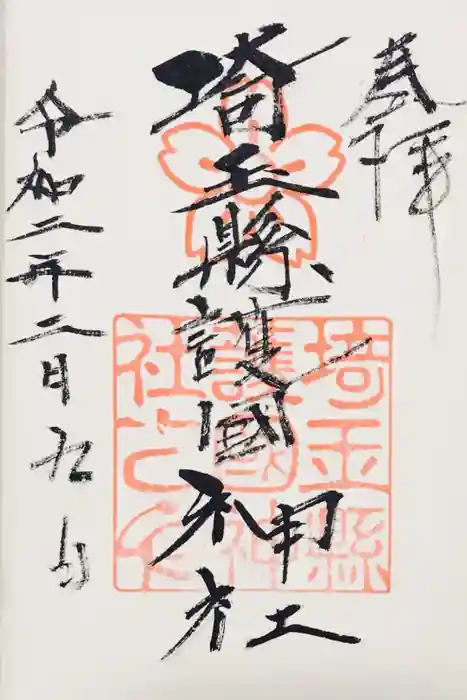 奉拝
埼玉縣護國神社
埼玉縣
護國神
社之印
令和二年二月九日